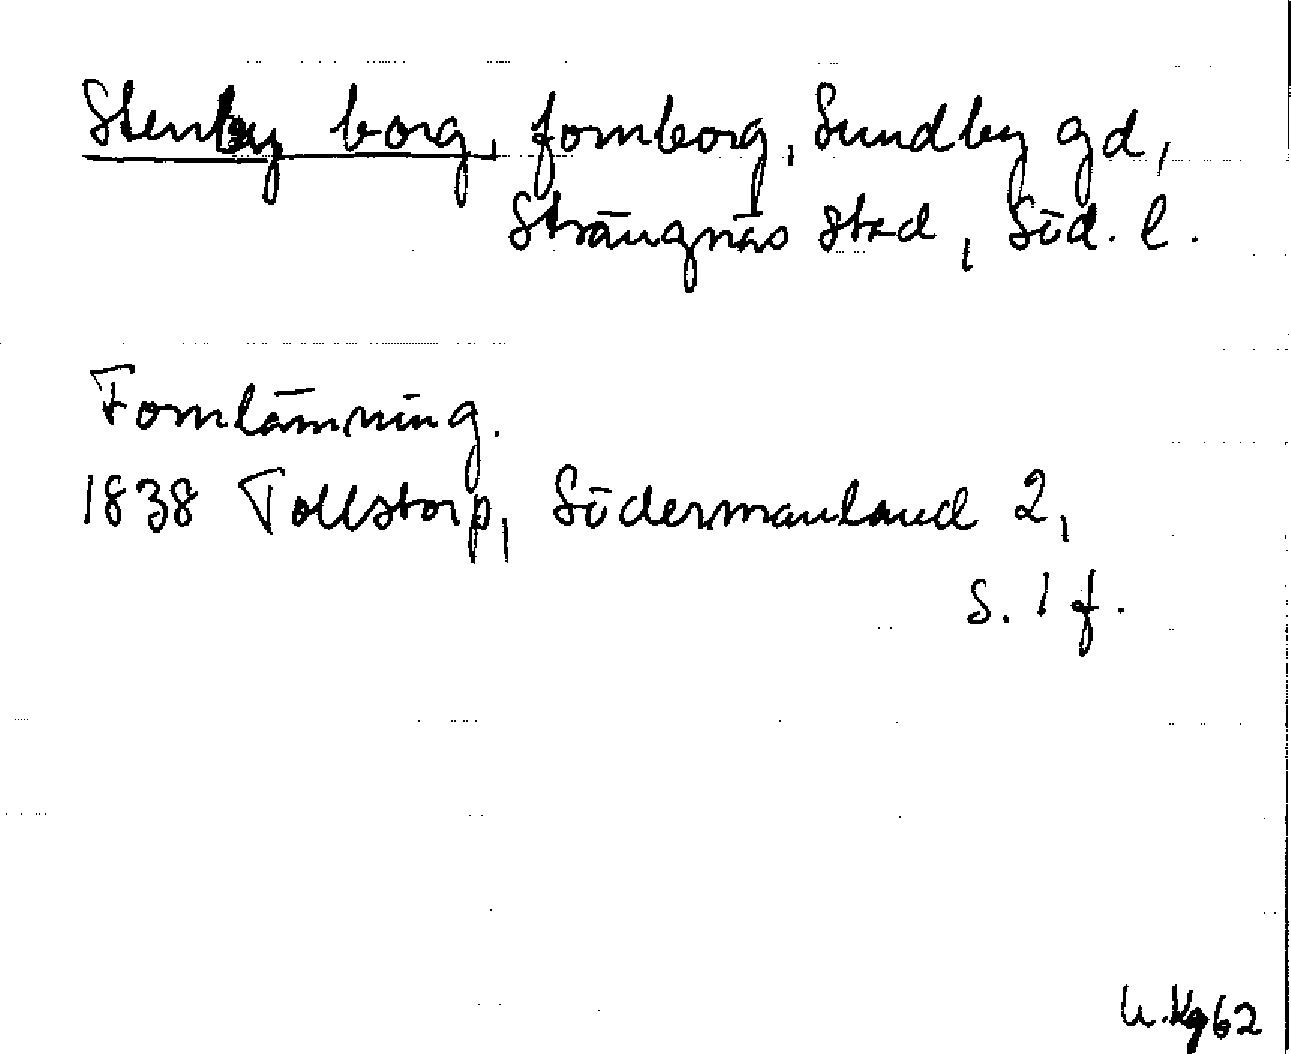 Stenby borg, fornborg, Sundby gd,
Strängnäs stad, Söd. l.
Fornlämning.
1838 Tollstorp, Södermanland 2,
s. 1 f.
U.Kg 62